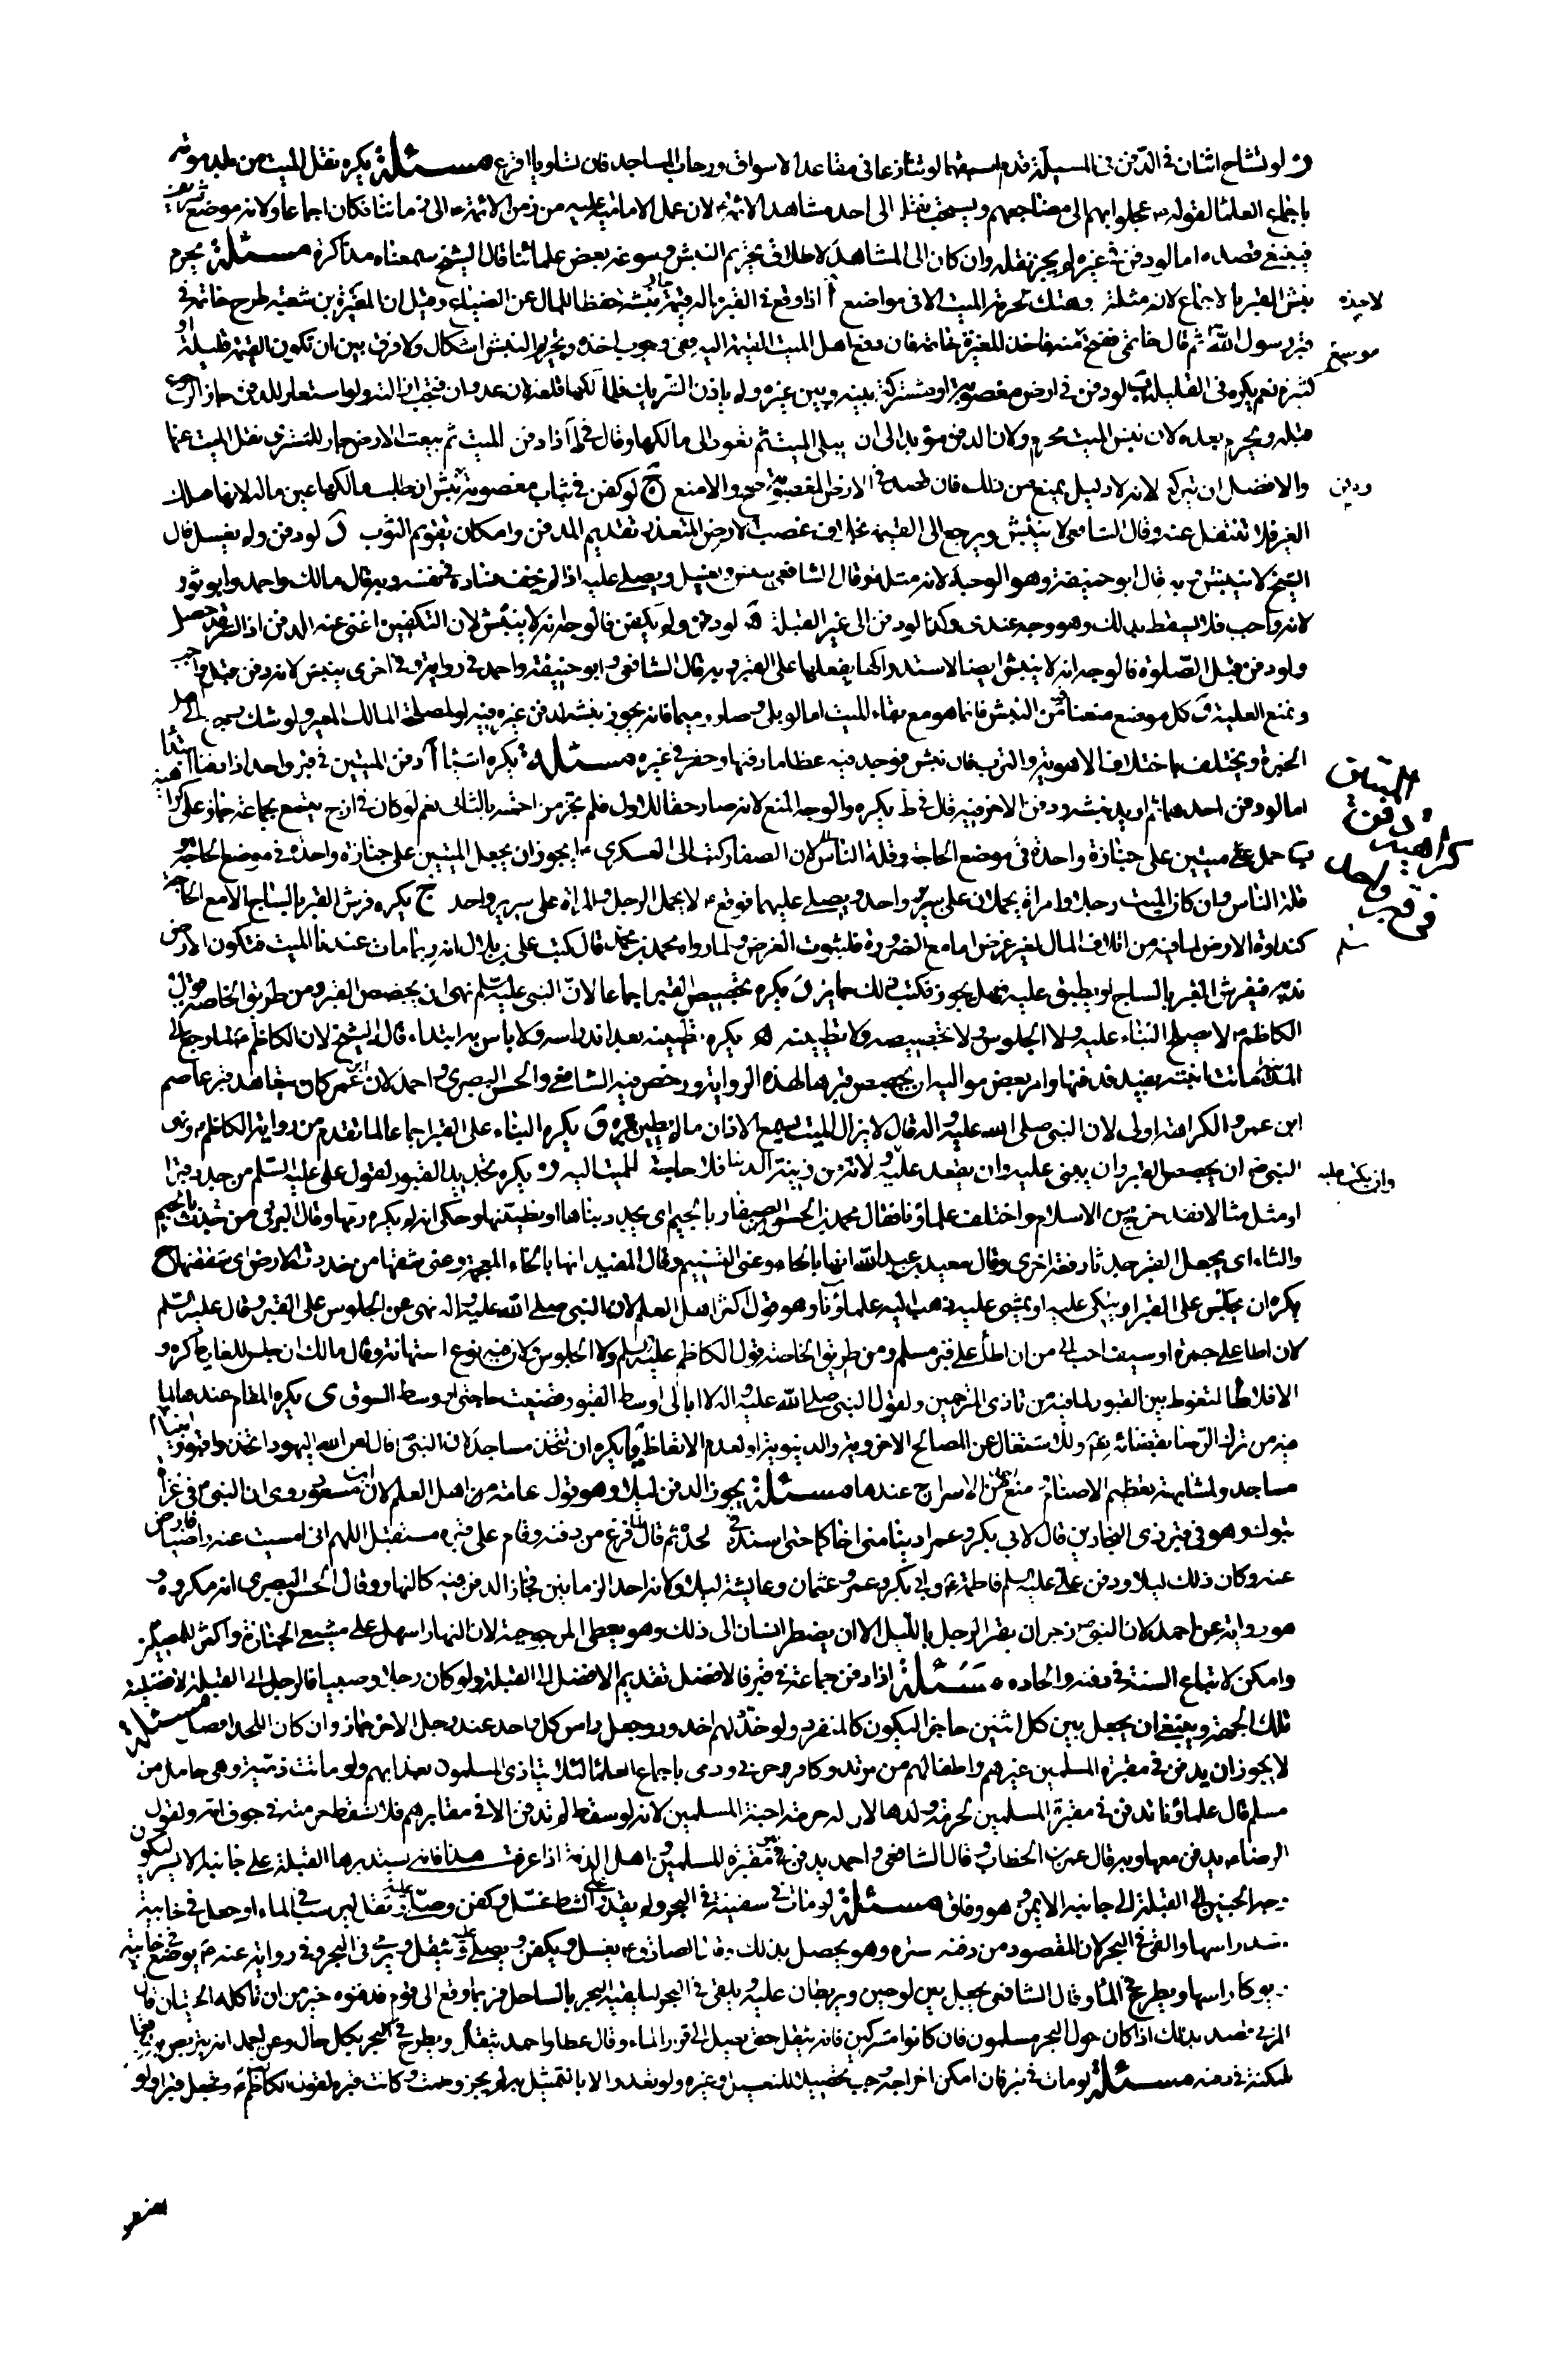 لو تشاح اثنان في الدفن في المسبلة قدم اسبقهما كما لو تنازعا في مقاعد الاسواق ورحاب المساجد فان تساويا اقرع مسئلة يكره نقل الميت من بلد موته
باجماع العلماء لقوله عجلوا بهم الى مضاجعهم ويستحب نقله الى احد مشاهد الائمة لان عمل الامامية عليه من زمن الائمة الى زماننا فكان اجماعا ولانه موضع شريف
فينبغي قصده اما لو دفن في غيره لم يجز نقله وان كان الى المشاهد لاطلاق تحريم النبش وسوغه بعض علمائنا قال الشيخ سمعناه مذاكرة مسئلة يحرم
نبش القبر بالاجماع لانه مثلة وهتك لحرمة الميت الا في مواضع أ اذا وقع في القبر ما له قيمة جاز نبشه حفظا للمال عن الضياع وقيل ان المغيرة بن شعبة طرح خاتمه في
قبر رسول الله ثم قال خاتمي ففتح منه فاخذ المغيرة خاتمه فان دفع اهل الميت القيمة اليه ففي وجوب اخذه وتحريم النبش اشكال ولا فرق بين ان تكون القيمة قليلة او
كثيرة نعم يكره في القليلة ب لو دفن في ارض مغصوبة او مشتركة بينه وبين غيره ولم ياذن الشريك فللمالك قلعه لانه عدوان فتجب ازالته ولو استعار للدفن جاز الرجوع
قبله ويحرم بعده لان نبش الميت محرم ولان الدفن مؤبد الى ان يبلى الميت ثم تعود الى مالكها وقال في ط اذا دفن الميت ثم بيعت الارض جاز للمشتري نقل الميت عنها
والافضل ان يتركه لانه لا دليل يمنع من ذلك فان قصد في الارض المغصوبة صح والا منع ج لو كفن في ثياب مغصوبة نبش ان طلب مالكها عين ماله لانها ملك
الغير فلا تنتقل عنه وقال الشافعي لا ينبش ويرجع الى القيمة بخلاف غصب الارض لتعذر تقديم المدفن وامكان تقويم الثوب د لو دفن ولم يغسل قال
الشيخ لا ينبش وبه قال ابو حنيفة وهو الوجه لانه مثلة وقال الشافعي ينبش ويغسل ويصلى عليه اذا لم يخف فساده في نفسه وبه قال مالك واحمد وابو ثور
لانه واجب فلا يسقط بذلك وهو وجه عندي وكذا لو دفن الى غير القبلة ه لو دفن ولم يكفن فالوجه انه لا ينبش لان التكفين اغنى عنه الدفن اذ الستر قد حصل
ولو دفن قبل الصلوة فالوجه انه لا ينبش ايضا لاستدراكها بفعلها على القبر وبه قال الشافعي وابو حنيفة واحمد في رواية وفي اخرى ينبش لانه دفن قبل واجب
ونمنع العلية و كل موضع منعنا فيه من النبش فانما هو مع بقاء الميت اما لو بلي وصار رميما فانه يجوز نبشه لدفن غيره فيه او لمصلحة المالك المعير ولو شك رجع الى اهل
الخبرة ويختلف باختلاف الاهوية والترب فان نبش فوجد فيه عظاما دفنها وحفر في غيره مسئلة يكره اشياء أ دفن الميتين في قبر واحد ابتداء
اما لو دفن احدهما ثم اريد نبشه ودفن الاخر فيه قال في ط يكره والوجه المنع لانه صار حقا للاول فلم تجز مزاحمته بالثاني نعم لو كان في ازج يتسع بجماعة جاز على كراهية
ب حمل ميتين على جنازة واحدة في موضع الحاجة وقلة الناس لان الصفار كتب الى العسكري ايجوز ان يجعل الميتين على جنازة واحدة في موضع الحاجة و
قلة الناس وان كان الميت رجلا وامراة يحملان على سرير واحد ويصلى عليهما فوقع لا يحمل الرجل والمراة على سرير واحد ج يكره فرش القبر بالساج الا مع الحاجة
كنداوة الارض لما فيه من اتلاف المال لغير غرض اما مع الضرورة فلثبوت الغرض ولما رواه محمد بن محمد قال كتب علي بن بلال انه ربما مات عندنا الميت فتكون الارض
ندية فيفرش القبر بالساج او يطبق عليه فهل يجوز فكتب ذلك جايز د يكره تجصيص القبر اجماعا لان النبي عليه السلم نهى ان يجصص القبر ومن طريق الخاصة قول
الكاظم لا يصلح البناء عليه ولا الجلوس ولا تجصيصه ولا تطيينه ه يكره تطيينه بعد اندراسه ولا باس به ابتداء قال الشيخ لان الكاظم لما رجع الى
المدينة ماتت ابنته بفيد فدفنها وامر بعض مواليه ان يجصص قبرها لهذه الرواية ورخص فيه الشافعي والحسن البصري واحمد لان ابن عمر كان يتعاهد قبر عاصم
ابن عمر والكراهة اولى لان النبي صلى الله عليه واله قال لا يزال الميت يسمع الاذان ما لم يطين قبره و يكره البناء على القبر اجماعا لما تقدم من رواية الكاظم ونهى
النبي ان يجصص القبر وان يبنى عليه وان يقعد عليه ولانه من زينة الدنيا فلا حاجة للميت اليه ز يكره تجديد القبور لقول علي عليه السلم من جدد قبرا
او مثل مثالا فقد خرج من الاسلام واختلف علماؤنا فقال محمد بن الحسن الصفار بالجيم اي يجدد بناها او تطيينها وحكى انه لم يكره رمها وقال البرقي من جدث بالجيم
والثاء اي يجعل القبر جدثا دفعة اخرى وقال سعد بن عبد الله انها بالحاء وعنى التسنيم وقال المفيد انها بالخاء المعجمة وعنى شقها من خددت الارض اي شققتها ح
يكره ان يجلس على القبر او يتكي عليه او يمشي عليه ذهب اليه علماؤنا وهو قول اكثر اهل العلم لان النبي صلى الله عليه واله نهى عن الجلوس على القبر وقال عليه السلم
لان اطا على جمرة او سيف احب الي من ان اطأ على قبر مسلم ومن طريق الخاصة قول الكاظم عليه السلم ولا الجلوس ولان فيه نوع استهانة وقال مالك ان جلس للغايط كره و
الا فلا ط التغوط بين القبور لما فيه من تاذي المترحمين ولقول النبي صلى الله عليه واله لا ابالي اوسط القبور قضيت حاجتي او وسط السوق ي يكره المقام عندها لما
فيه من ترك الرضا بقضائه تعالى وللاشتغال عن المصالح الاخروية والدنيوية او لعدم الاتعاظ يا يكره ان تتخذ مساجد لان النبي قال لعن الله اليهود اتخذوا قبور انبيائهم
مساجد ولمشابهة تعظيم الاصنام منع من الاسراج عندها مسئلة يجوز الدفن ليلا وهو قول عامة من اهل العلم لان ابن مسعود روى ان النبي في غزاة
تبوك وهو في قبر ذي البجادين قال لابي بكر وعمر ادنيا مني اخاكما حتى اسنده في لحده ثم قال لما فرغ من دفنه وقام على قبره مستقبل القبلة اللهم اني امسيت عنه راضيا فارض
عنه وكان ذلك ليلا ودفن علي عليه السلم فاطمة وابي بكر وعمر وعثمان وعايشة ليلا ولانه احد الزمانين فجاز الدفن فيه كالنهار وقال الحسن البصري انه مكروه و
هو رواية عن احمد لان النبي زجر ان يقبر الرجل بالليل الا ان يضطر انسان الى ذلك وهو يعطي المرجوحية لان النهار اسهل على مشيع الجنازة واكثر للمصلين
وامكن لاتباع السنة في دفنه والحاده مسئلة اذا دفن جماعة في قبر فالافضل تقديم الافضل الى القبلة ولو كان رجلا وصبيا فالرجل الى القبلة لافضلية
تلك الجهة وينبغي ان يجعل بين كل اثنين حاجزا ليكون كالمنفرد ولو خد لهم اخدود وجعل راس كل واحد عند رجل الاخر جاز وان كان اللحد افضل مسئلة
لا يجوز ان يدفن في مقبرة المسلمين غيرهم واطفالهم من مرتد وكافر حربي وذمي باجماع العلماء لئلا يتاذى المسلمون بعذابهم ولو ماتت ذمية وهي حامل من
مسلم قال علماؤنا تدفن في مقبرة المسلمين لحرمة ولدها لان له حرمة اجنة المسلمين لانه لو سقط لم تدفن الا في مقابرهم فلا تسقط حرمته في جوف امه ولقول
الرضا يدفن معها وبه قال عمر بن الخطاب وقال الشافعي واحمد يدفن في مقبرة بين المسلمين واهل الذمة اذا عرفت هذا فانه يستدبر بها القبلة على جانبها الايسر ليكون
وجه الجنين الى القبلة الى جانبه الايمن وهو وفاق مسئلة لو مات في سفينة في البحر ولم يقدر على الشط غسل وكفن وصلى عليه ونقل ليرسب في الماء او جعل في خابية
وشد راسها والقي في البحر لان المقصود من دفنه ستره وهو يحصل بذلك قال الصادق يغسل ويكفن ويصلى عليه ويثقل ويرمى في البحر وفي رواية عنه يوضع في خابية
ويوكا راسها ويطرح في الماء وقال الشافعي يجعل بين لوحين ويربطان عليه ويلقى في البحر ليلقيه البحر بالساحل فربما وقع الى قوم فدفنوه خير من ان تاكله الحيتان قال
المزني قصد بذلك اذا كان حول البحر مسلمون فان كانوا مشركين فانه يثقل حتى يصل الى قرار الماء وقال عطا واحمد يثقل ويطرح في البحر بكل حال وعن احمد انه يتربص به رجاء
تمكنه في دفنه مسئلة لو مات في بئر فان امكن اخراجه وجب تحصيلا للتغسيل وغيره ولو تعذر الا بالتمثيل به لم يجز وطمت وكانت قبره لقول الكاظم وتجعل قبرا ولو
كراهية دفن الميتان في قبر واحد
وان يكتب عليه